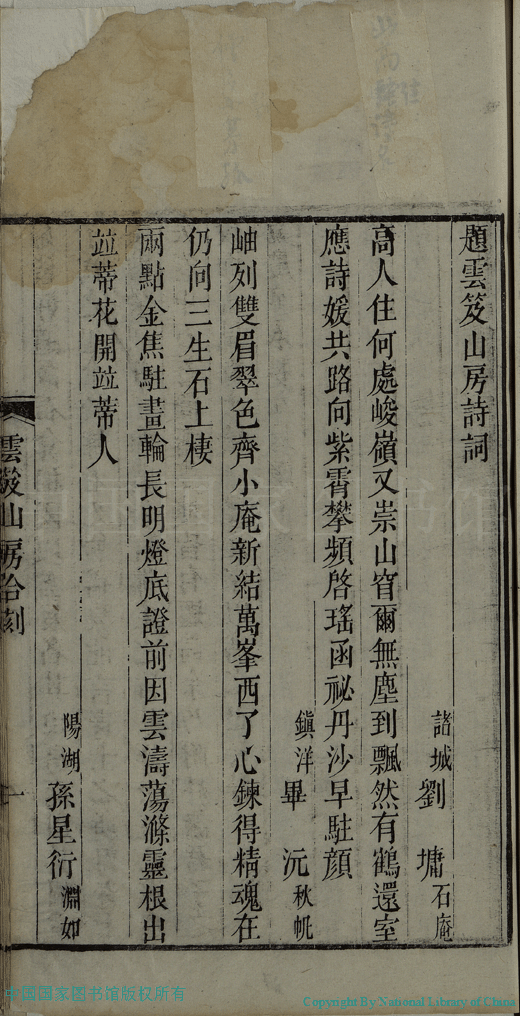 題雲笈山房詩詞
諸城劉墉石庵
高人住何處峻嶺又崇山窅爾無塵到飄然有鶴還室
應詩媛共路向紫霄攀頻啓瑤函祕丹沙早駐顏
鎮洋畢沅秋帆
岫列雙眉翠色齊小庵新結萬峯西了心鍊得精魂在
仍向三生石上棲
兩點金焦駐畫輪長明燈底證前因雲濤蕩滌靈根出
竝蒂花開竝蒂人
陽湖孫星衍淵如
雲笈山房合刻
一
中国国家图书馆版权所有
Copyright By National Library of China